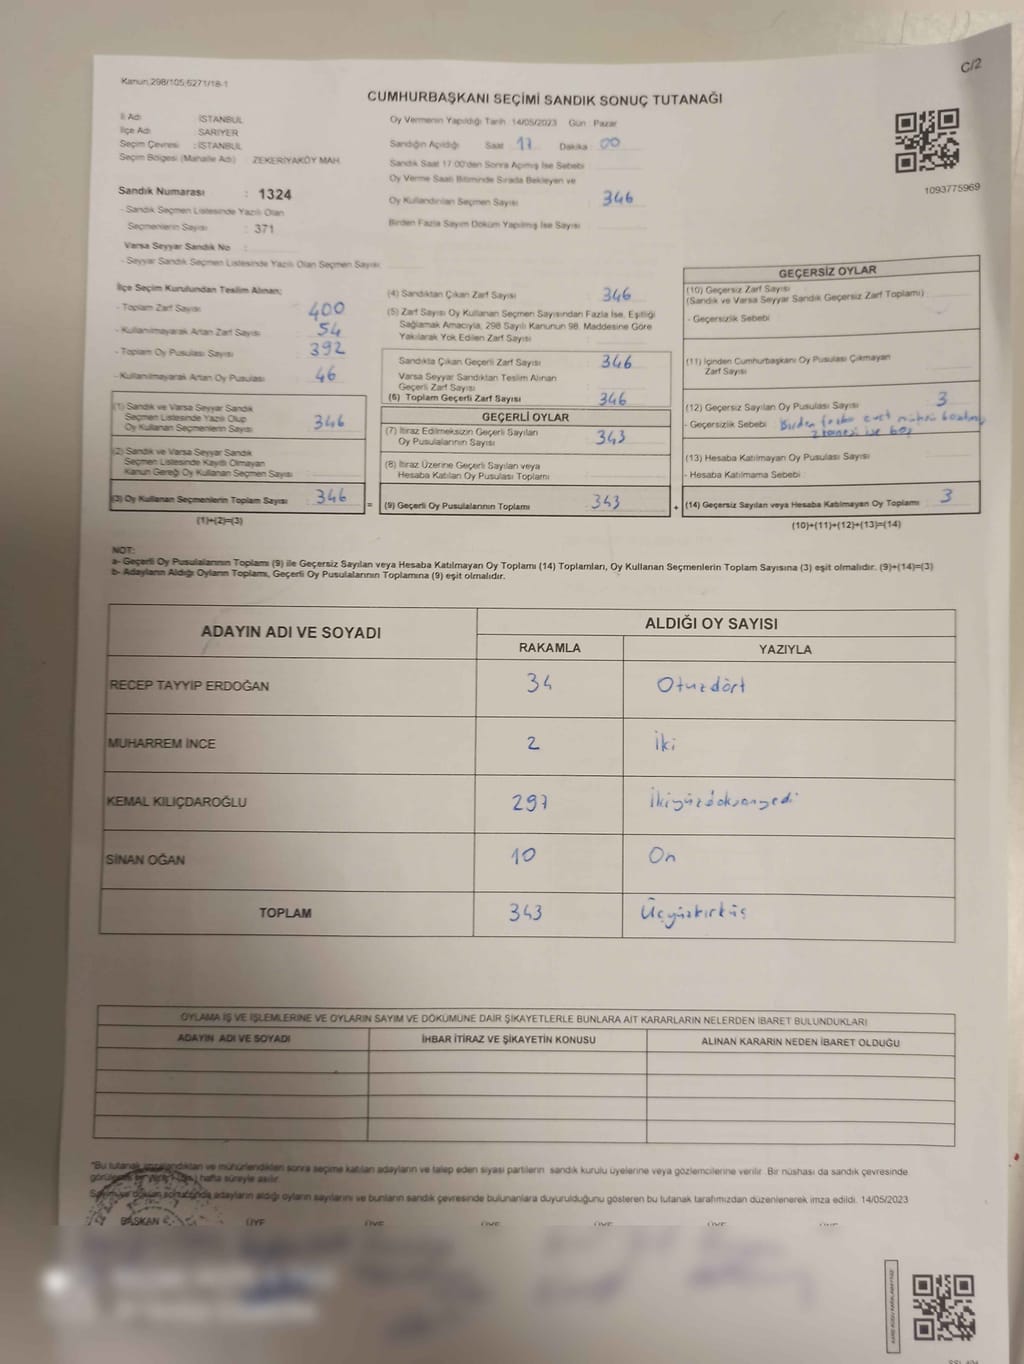 C/2
Kanun:298/105;6271/18-1
CUMHURBAŞKANI SEÇİMİ SANDIK SONUÇ TUTANAĞI
İl Adı : İSTANBUL
İlçe Adı : SARIYER
Seçim Çevresi : İSTANBUL
Seçim Bölgesi (Mahalle Adı) : ZEKERİYAKÖY MAH
Sandık Numarası : 1324
- Sandık Seçmen Listesinde Yazılı Olan
Seçmenlerin Sayısı : 371
Varsa Seyyar Sandık No :
- Seyyar Sandık Seçmen Listesinde Yazılı Olan Seçmen Sayısı:
Oy Vermenin Yapıldığı Tarih 14/05/2023 Gün : Pazar
Sandığın Açıldığı Saat 17 Dakika 00
Sandık Saat 17:00'den Sonra Açımış İse Sebebi
Oy Verme Saati Bitiminde Sırada Bekleyen ve
Oy Kullandırılan Seçmen Sayısı : 346
Birden Fazla Sayım Döküm Yapılmış İse Sayısı
1093775969
İlçe Seçim Kurulundan Teslim Alınan;
- Toplam Zarf Sayısı : 400
- Kullanılmayarak Artan Zarf Sayısı : 54
- Toplam Oy Pusulası Sayısı : 392
- Kullanılmayarak Artan Oy Pusulası : 46
(1) Sandık ve Varsa Seyyar Sandık
Seçmen Listesinde Yazılı Olup
Oy Kullanan Seçmenlerin Sayısı : 346
(2) Sandık ve Varsa Seyyar Sandık
Seçmen Listesinde Kayıtlı Olmayan
Kanun Gereği Oy Kullanan Seçmen Sayısı :
(3) Oy Kullanan Seçmenlerin Toplam Sayısı : 346
(1)+(2)=(3)
(4) Sandıktan Çıkan Zarf Sayısı : 346
(5) Zarf Sayısı Oy Kullanan Seçmen Sayısından Fazla İse, Eşitliği
Sağlamak Amacıyla, 298 Sayılı Kanunun 98. Maddesine Göre
Yakılarak Yok Edilen Zarf Sayısı
Sandıkta Çıkan Geçerli Zarf Sayısı : 346
Varsa Seyyar Sandıktan Teslim Alınan
Geçerli Zarf Sayısı
(6) Toplam Geçerli Zarf Sayısı : 346
GEÇERLİ OYLAR
(7) İtiraz Edilmeksizin Geçerli Sayılan
Oy Pusulalarının Sayısı : 343
(8) İtiraz Üzerine Geçerli Sayılan veya
Hesaba Katılan Oy Pusulası Toplamı
= (9) Geçerli Oy Pusulalarının Toplamı : 343 +
GEÇERSİZ OYLAR
(10) Geçersiz Zarf Sayısı
(Sandık ve Varsa Seyyar Sandık Geçersiz Zarf Toplamı)
- Geçersizlik Sebebi :
(11) İçinden Cumhurbaşkanı Oy Pusulası Çıkmayan
Zarf Sayısı
(12) Geçersiz Sayılan Oy Pusulası Sayısı : 3
- Geçersizlik Sebebi : Birden fazla evet mührü
2 tanesi ise boş
(13) Hesaba Katılmayan Oy Pusulası Sayısı :
- Hesaba Katılmama Sebebi :
(14) Geçersiz Sayılan veya Hesaba Katılmayan Oy Toplamı 3
(10)+(11)+(12)+(13)=(14)
NOT:
a- Geçerli Oy Pusulalarının Toplamı (9) ile Geçersiz Sayılan veya Hesaba Katılmayan Oy Toplamı (14) Toplamları, Oy Kullanan Seçmenlerin Toplam Sayısına (3) eşit olmalıdır. (9)+(14)=(3)
b- Adayların Aldığı Oyların Toplamı, Geçerli Oy Pusulalarının Toplamına (9) eşit olmalıdır.
ADAYIN ADI VE SOYADI ALDIĞI OY SAYISI
RAKAMLA YAZIYLA
RECEP TAYYIP ERDOĞAN 34 Otuzdört
MUHARREM İNCE 2 İki
KEMAL KILIÇDAROĞLU 297 İkiyüzdoksanyedi
SİNAN OĞAN 10 On
TOPLAM 343 Üçyüzkırküç
OYLAMA İŞ VE İŞLEMLERİNE VE OYLARIN SAYIM VE DÖKÜMÜNE DAİR ŞİKAYETLERLE BUNLARA AİT KARARLARIN NELERDEN İBARET BULUNDUKLARI
ADAYIN ADI VE SOYADI İHBAR İTİRAZ VE ŞİKAYETİN KONUSU ALINAN KARARIN NEDEN İBARET OLDUĞU
*Bu tutanak imzalandıktan ve mühürlendikten sonra seçime katılan adayların ve talep eden siyasi partilerin sandık kurulu üyelerine veya gözlemcilerine verilir. Bir nüshası da sandık çevresinde
hafta süreyle asılır.
Sayım ve döküm sonucunda adayların aldığı oyların sayılarını ve bunların sandık çevresinde bulunanlara duyurulduğunu gösteren bu tutanak tarafımızdan düzenlenerek imza edildi. 14/05/2023
BAŞKAN ÜYE ÜYE ÜYE ÜYE ÜYE ÜYE